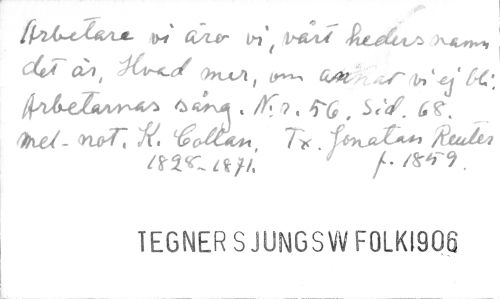 Arbetare vi äro vi, vårt heders namn
det är, Hvad mer, om annat vi ej bli.
Arbetarnas sång. N:r. 56. Sid. 68.
mel- not. K. Collan, Tx. Jonatan Reuter
1828-1871. f. 1859.
TEGNER SJUNGSW FOLK1906